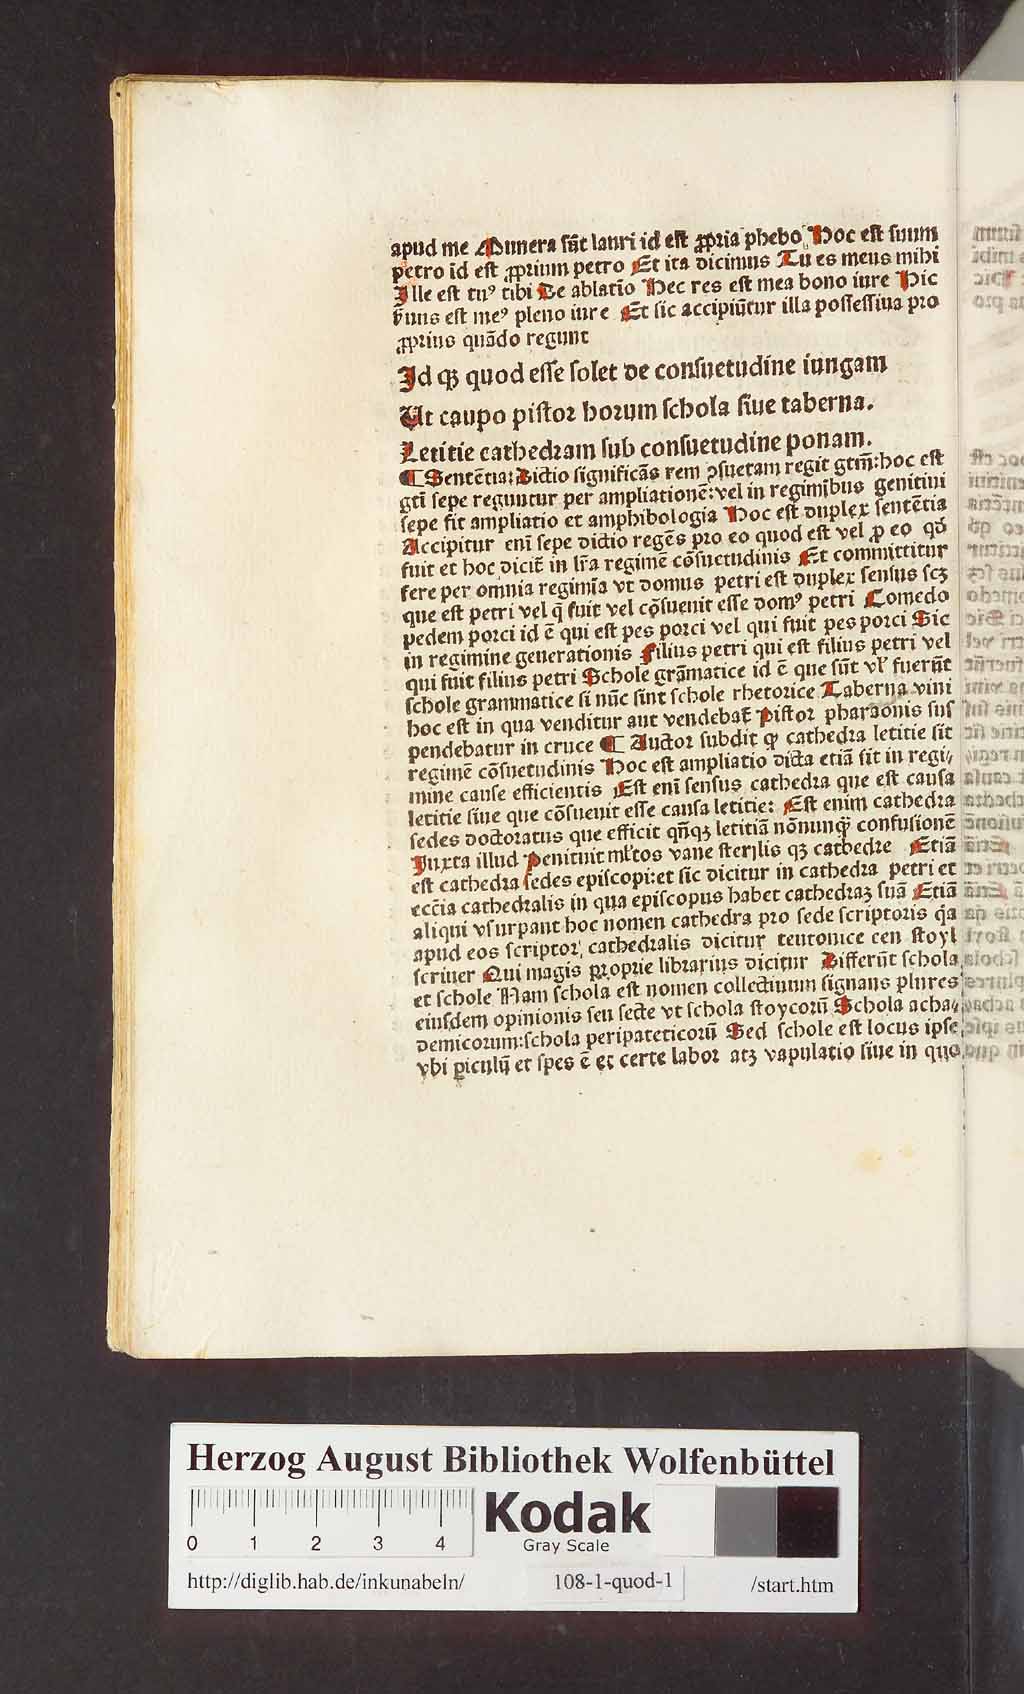 apud me Munera sūt lauri id est ꝓpria phebo Hoc est suum
petro id est ꝓprium petro Et ita dicimus Tu es meus mihi
Ille est tuꝰ tibi De ablatio Hec res est mea bono iure Hic
ẜuus est meꝰ pleno iure Et sic accipiūtur illa possessiua pro
ꝓprius quādo regunt
Id ꝙ quod esse solet de consuetudine iungam
Ut caupo pistor horum schola siue taberna.
Letitie cathedram sub consuetudine ponam.
¶ Sentētia: Dictio significās rem ↄsuetam regit gtm̄: hoc est
gti̅ sepe reguntur per ampliationē: vel in regiminibus genitiui
sepe fit ampliatio et amphibologia Hoc est duplex sentētia
Accipitur eni̅ sepe dictio regēs pro eo quod est vel ꝓ eo qd̛
fuit et hoc dicit̛ in lr̄a regimē cōsuetudinis Et committitur
fere per omnia regimi̅a vt domus petri est duplex sensus scꝫ
que est petri vel q̄ fuit vel cōsueuit esse domꝰ petri Comedo
pedem porci id ē qui est pes porci vel qui fuit pes porci Sic
in regimine generationis Filius petri qui est filius petri vel
qui fuit filius petri Schole grāmatice id ē que sūt vl̛ fuerūt
schole grammatice si nūc sint schole rhetorice Taberna vini
hoc est in qua venditur aut vendebat̛ Pistor pharaonis sus
pendebatur in cruce ¶ Auctor subdit ꝙ cathedra letitie sit
regimē cōsuetudinis Hoc est ampliatio dicta etiā sit in regi⸗
mine cause efficientis Est eni̅ sensus cathedra que est causa
letitie siue que cōsueuit esse causa letitie: Est enim cathedra
sedes doctoratus que efficit qn̄qꝫ letitiā nōnunꝙ̄ confusionē
Juxta illud Penituit ml̛tos vane sterilis qꝫ cathedre Etiā
est cathedra sedes episcopi: et sic dicitur in cathedra petri et
ecc̄ia cathedralis in qua episcopus habet cathedraꝫ suā Etiā
aliqui vsurpant hoc nomen cathedra pro sede scriptoris q̄a
apud eos scriptor cathedralis dicitur teutonice cen stoyl
scriuer Qui magis proprie librarius dicitur Differūt schola
et schole Nam schola est nomen collectiuum signans plures
eiusdem opinionis seu secte vt schola stoycorū Schola acha⸗
demicorum: schola peripateticorū Sed schole est locus ipse
vbi ꝑiculū et spes ē et certe labor atꝫ vapulatio siue in quo
Herzog August Bibliothek Wolfenbüttel
Kodak
Gray Scale
0 1 2 3 4
http://diglib.hab.de/inkunabeln/ 108-1-quod-1 /start.htm